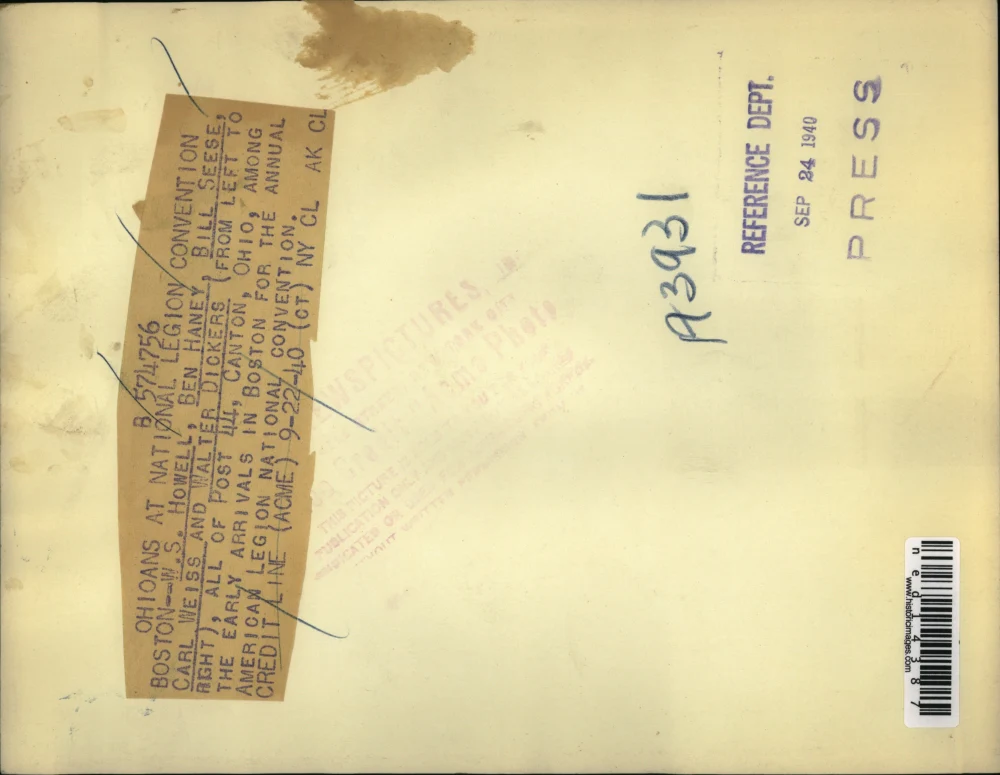 B 574756
OHIOANS AT NATIONAL LEGION CONVENTION
BOSTON--W.S. HOWELL, BEN HANEY, BILL SEESE,
CARL WEISS AND WALTER DICKERS (FROM LEFT TO
RIGHT), ALL OF POST 44, CANTON, OHIO, AMONG
THE EARLY ARRIVALS IN BOSTON FOR THE ANNUAL
AMERICAN LEGION NATIONAL CONVENTION.
CREDIT LINE (ACME) 9-22-40 (CT) NY CL AK CL
NEWSPICTURES, INC
Photo
THIS PICTURE IS
PUBLICATION ONLY
SYNDICATED OR
WRITTEN
A3931
REFERENCE DEPT.
SEP 24 1940
PRESS
ned14387
www.historicimages.com